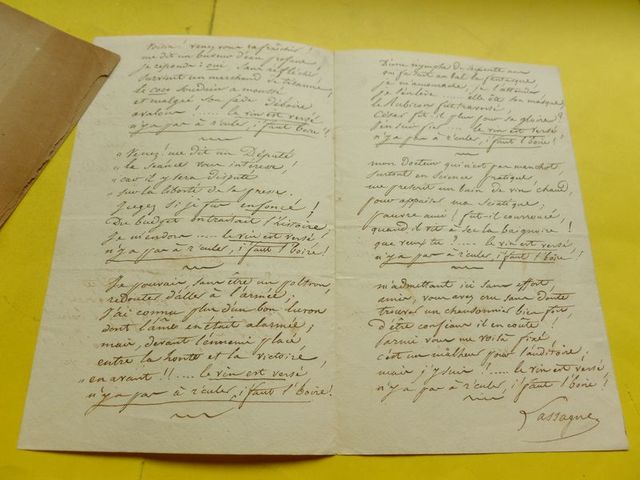 Voisin ! venez vous rafraîchir !
me dit un buveur d'eau
je réponds : oui, sans réfléchir,
survient un marchand de tisanne,
le coco soudain a moussé
et malgré son fade déboire
avalons !..... le vin est versé
n'y a pas à r'culer, i' faut l' boire !
„ Venez ! me dit un Député
„ la séance vous intéresse,
„ car il y sera disputé
„ sur la liberté de la presse.
Jugez si j'fus enfoncé !
Du budget on traitait l'histoire,
Je m'endors .... le vin est versé
n'y a pas à r'culer, i' faut l' boire !
Je pouvais, sans être un poltron,
redouter d'aller à l'armée ;
J'ai connu plus d'un bon luron
dont l'âme en était alarmée ;
mais, devant l'ennemi placé
entre la honte et la victoire,
„ en avant !!..... le vin est versé
n'y a pas à r'culer, i' faut l' boire !
D'une nymphe de soixante ans
on faisait au bal la fantasque,
je l'attendais
elle ôte son masque,
le Rubicon fut traversé,
César fit-il plus pour sa gloire ?
..... le vin est versé
n'y a pas à r'culer, i' faut l' boire !
mon docteur qui n'est pas manchot
surtout en science pratique,
me prescrit un bain de vin chaud,
pour appaiser ma sciatique ;
pauvre ami ! fut-il courroucé,
quand il vit à sec la baignoire !
que veux-tu ?.... le vin est versé,
n'y a pas à r'culer, i' faut l' boire !
m'admettant ici sans effort,
amis, vous avez cru sans doute
trouver un chansonnier bien fort
d'être confians il en coûte !
Parmi vous me voilà fixé
c'est un malheur pour l'auditoire ;
mais j'y suis !..... le vin est versé
n'y a pas à r'culer, i' faut l' boire !
Lassagne